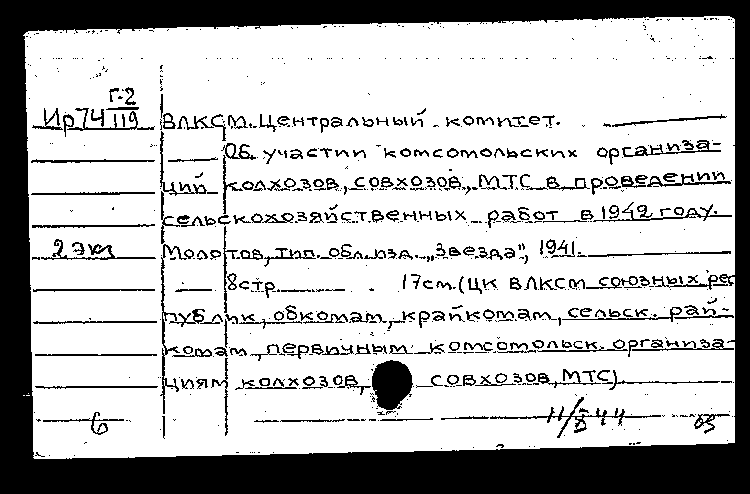 Г-2
Ир74 119 ВЛКСМ. Центральный комитет.
Об участии комсомольских организа-
ций колхозов, совхозов, МТС в проведении
сельскохозяйственных работ в 1942 году.
2 экз Молотов, тип. обл. изд. „Звезда", 1941.
8 стр. 17 см. (ЦК ВЛКСМ союзных рес
публик, обкомам, крайкомам, сельск. рай-
комам, первичным комсомольск. организа-
циям колхозов, совхозов, МТС).
6 11/II 44